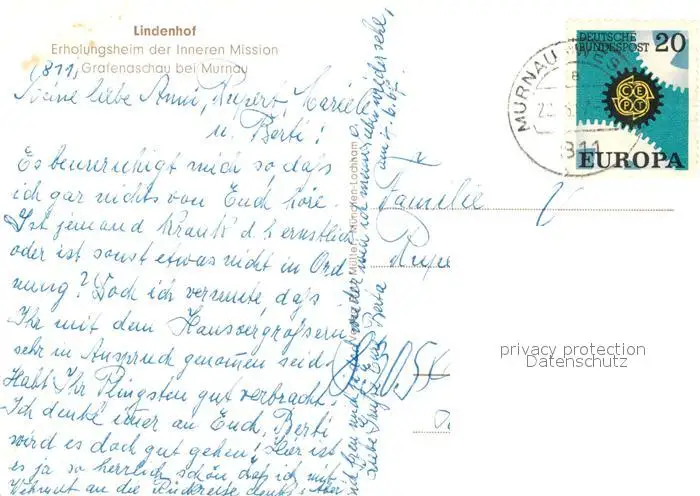 Lindenhof
Erholungsheim der Inneren Mission
(811) Grafenaschau bei Murnau
Meine liebe Anni, Rupert, Mariele
u. Berti!
Es beunruhigt mich so, daß
ich gar nichts von Euch höre.
Ist jemand krank d. h. ernstlich
oder ist sonst etwas nicht in Ord
nung? Doch ich vermute, daß
Ihr mit dem Hausvergrößern
sehr in Anspruch genomen seid.
Habt Ihr Pfingsten gut verbracht,
Ich denke imer an Euch, Berti
wird es doch gut gehen! Hier ist
es ja so herrlich schön daß ich mit
Wehmut an die Rückreise denke; Aber
wieder
liebe Grüße Eure Berta
am 7. 6. 67
Müller, München-Lochham
Familie
Rupe
MURNAU
811
DEUTSCHE
BUNDESPOST 20
CEPT
EUROPA
privacy protection
Datenschutz